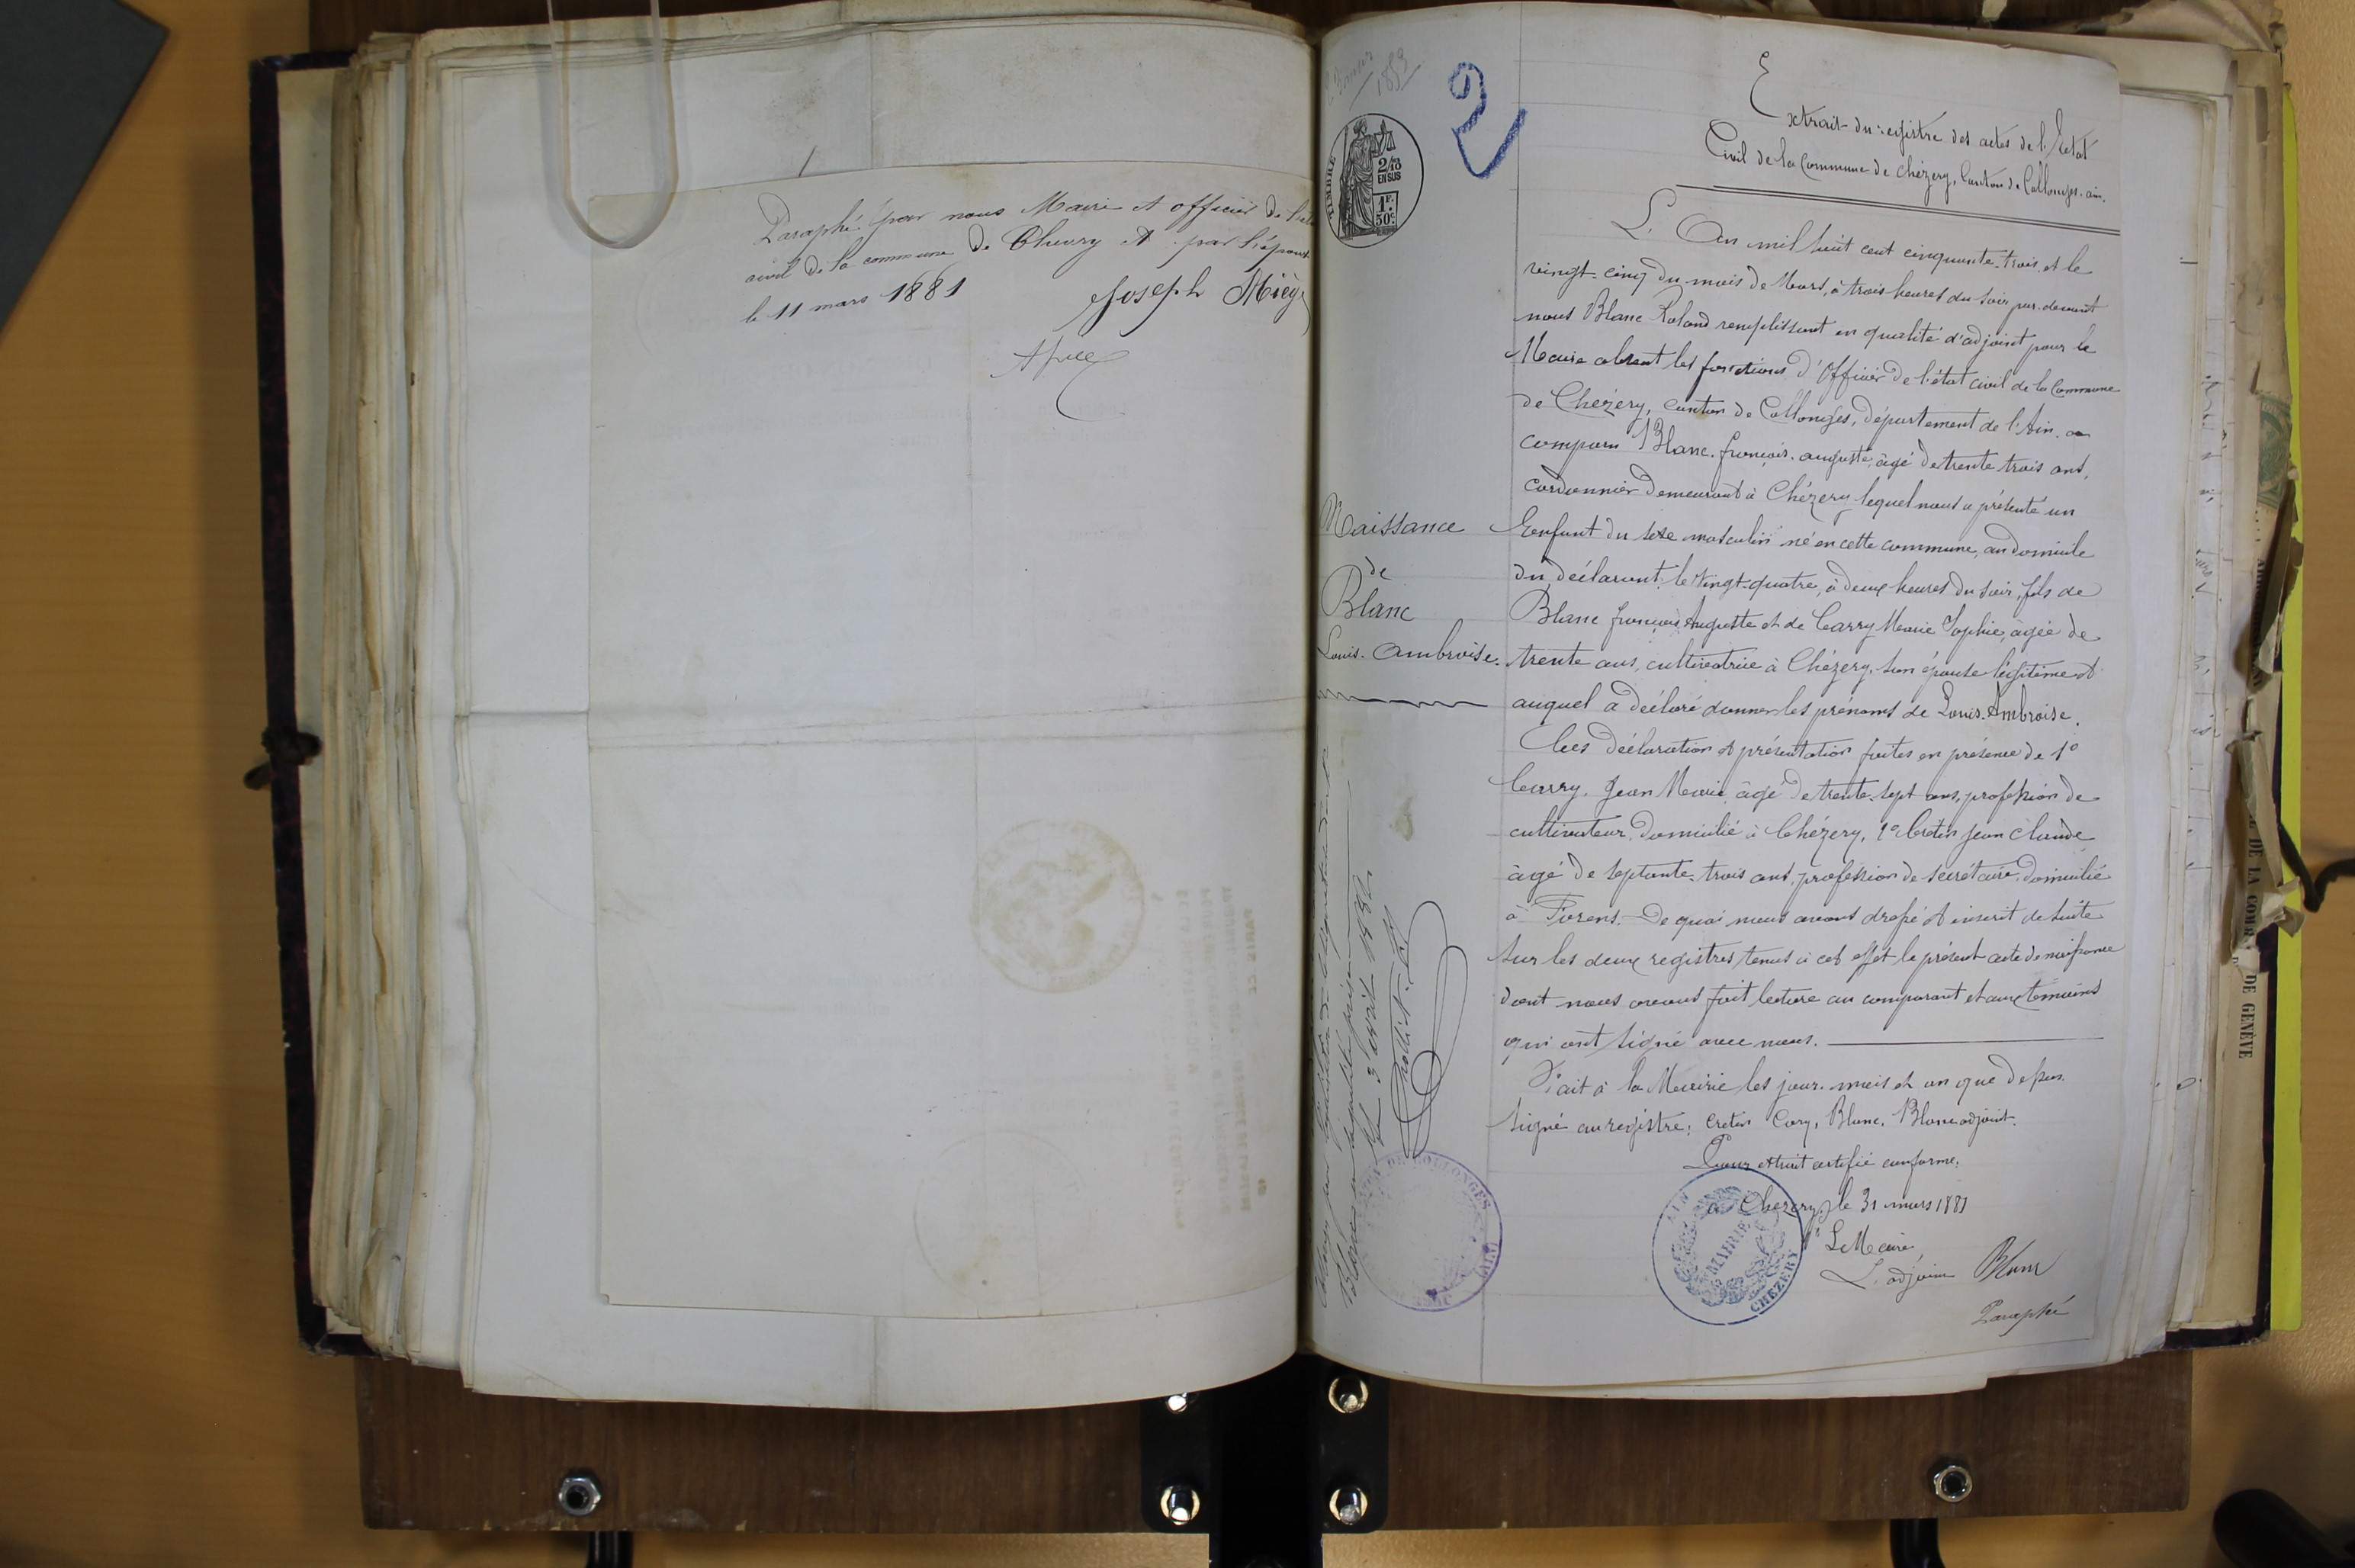 Paraphé par nous Maire et officier de l'état
civil de la commune de Thairy et par l'époux
le 11 mars 1881
Joseph Miège
2
1853
TIMBRE
2/10
EN SUS
1F.
50c.
Extrait du registre des actes de l'Etat
Civil de la Commune de Chézery, Canton de Collonges. ain.
L'An mil huit cent cinquante-trois, et le
vingt-cinq du mois de Mars, à trois heures du soir par-devant
nous Blanc Roland remplissant en qualité d'adjoint pour le
Maire absent les fonctions d'Officier de l'état civil de la Commune
de Chézery, canton de Collonges, département de l'Ain. a
comparu Blanc. françois. auguste, âgé de trente trois ans,
cordonnier demeurant à Chézery lequel nous a présenté un
Enfant du sexe masculin né en cette commune, au domicile
du déclarant. le vingt-quatre, à deux heures du soir, fils de
Blanc françois Auguste et de Carry Marie Sophie, âgée de
trente ans, cultivatrice à Chézery, son épouse légitime et
auquel a déclaré donner les prénoms de Louis-Ambroise.
Les déclaration et présentation faites en présence de 1°
Carry. Jean Marie âgé de trente-sept ans, profession de
cultivateur, domicilié à Chézery, 2° Cretin Jean Claude
âgé de septante-trois ans, profession de secrétaire, domicilié
à Forens. De quoi nous avons dressé et inscrit de suite
sur les deux registres tenus à cet effet le présent acte de naissance
dont nous avons fait lecture au comparant et aux témoins
qui ont signé avec nous.
Fait à la Mairie les jour. mois et an que dessus.
Signé au registre: Cretin Cary, Blanc, Blanc adjoint.
Pour extrait certifié conforme:
à Chézery, le 31 mars 1881
Le Maire,
L'adjoint Blanc
Paraphé
Naissance
de
Blanc
Louis. Ambroise.
AIN
MAIRIE
CHEZERY
DE COLLONGES
DE LA COUR
DE GENÈVE